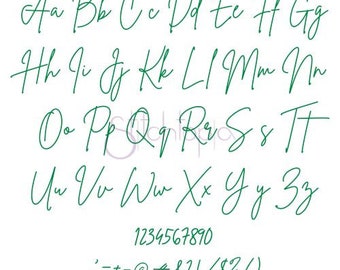 Aa Bb Cc Dd Ee Ff Gg
Hh Ii Jj Kk Ll Mm Nn
Oo Pp Qq Rr Ss Tt
Stitchtopia
Uu Vv Ww Xx Yy Zz
1234567890